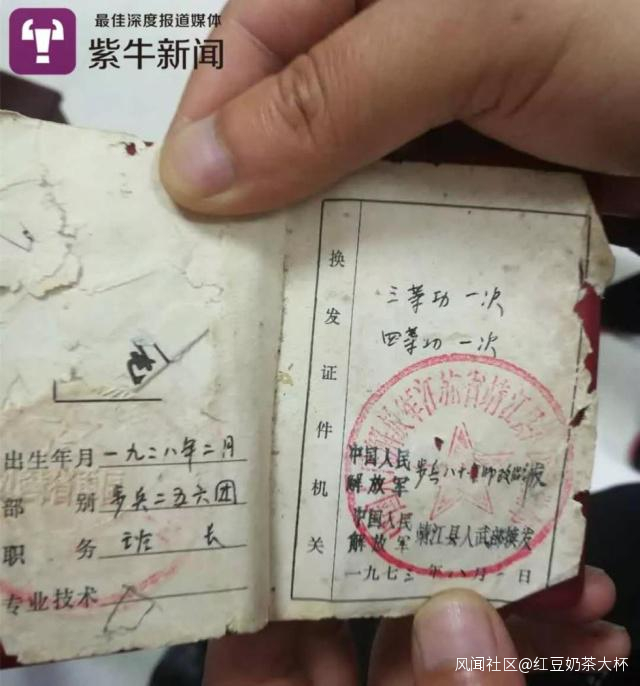 最佳深度报道媒体
紫牛新闻
出生年月 一九二八年二月
部别 步兵二五六团
职务 班长
专业技术
换发证件机关
三等功一次
四等功一次
中国人民解放军
中国人民解放军 靖江县人武部换发
一九七三年八月一日
风闻社区@红豆奶茶大杯